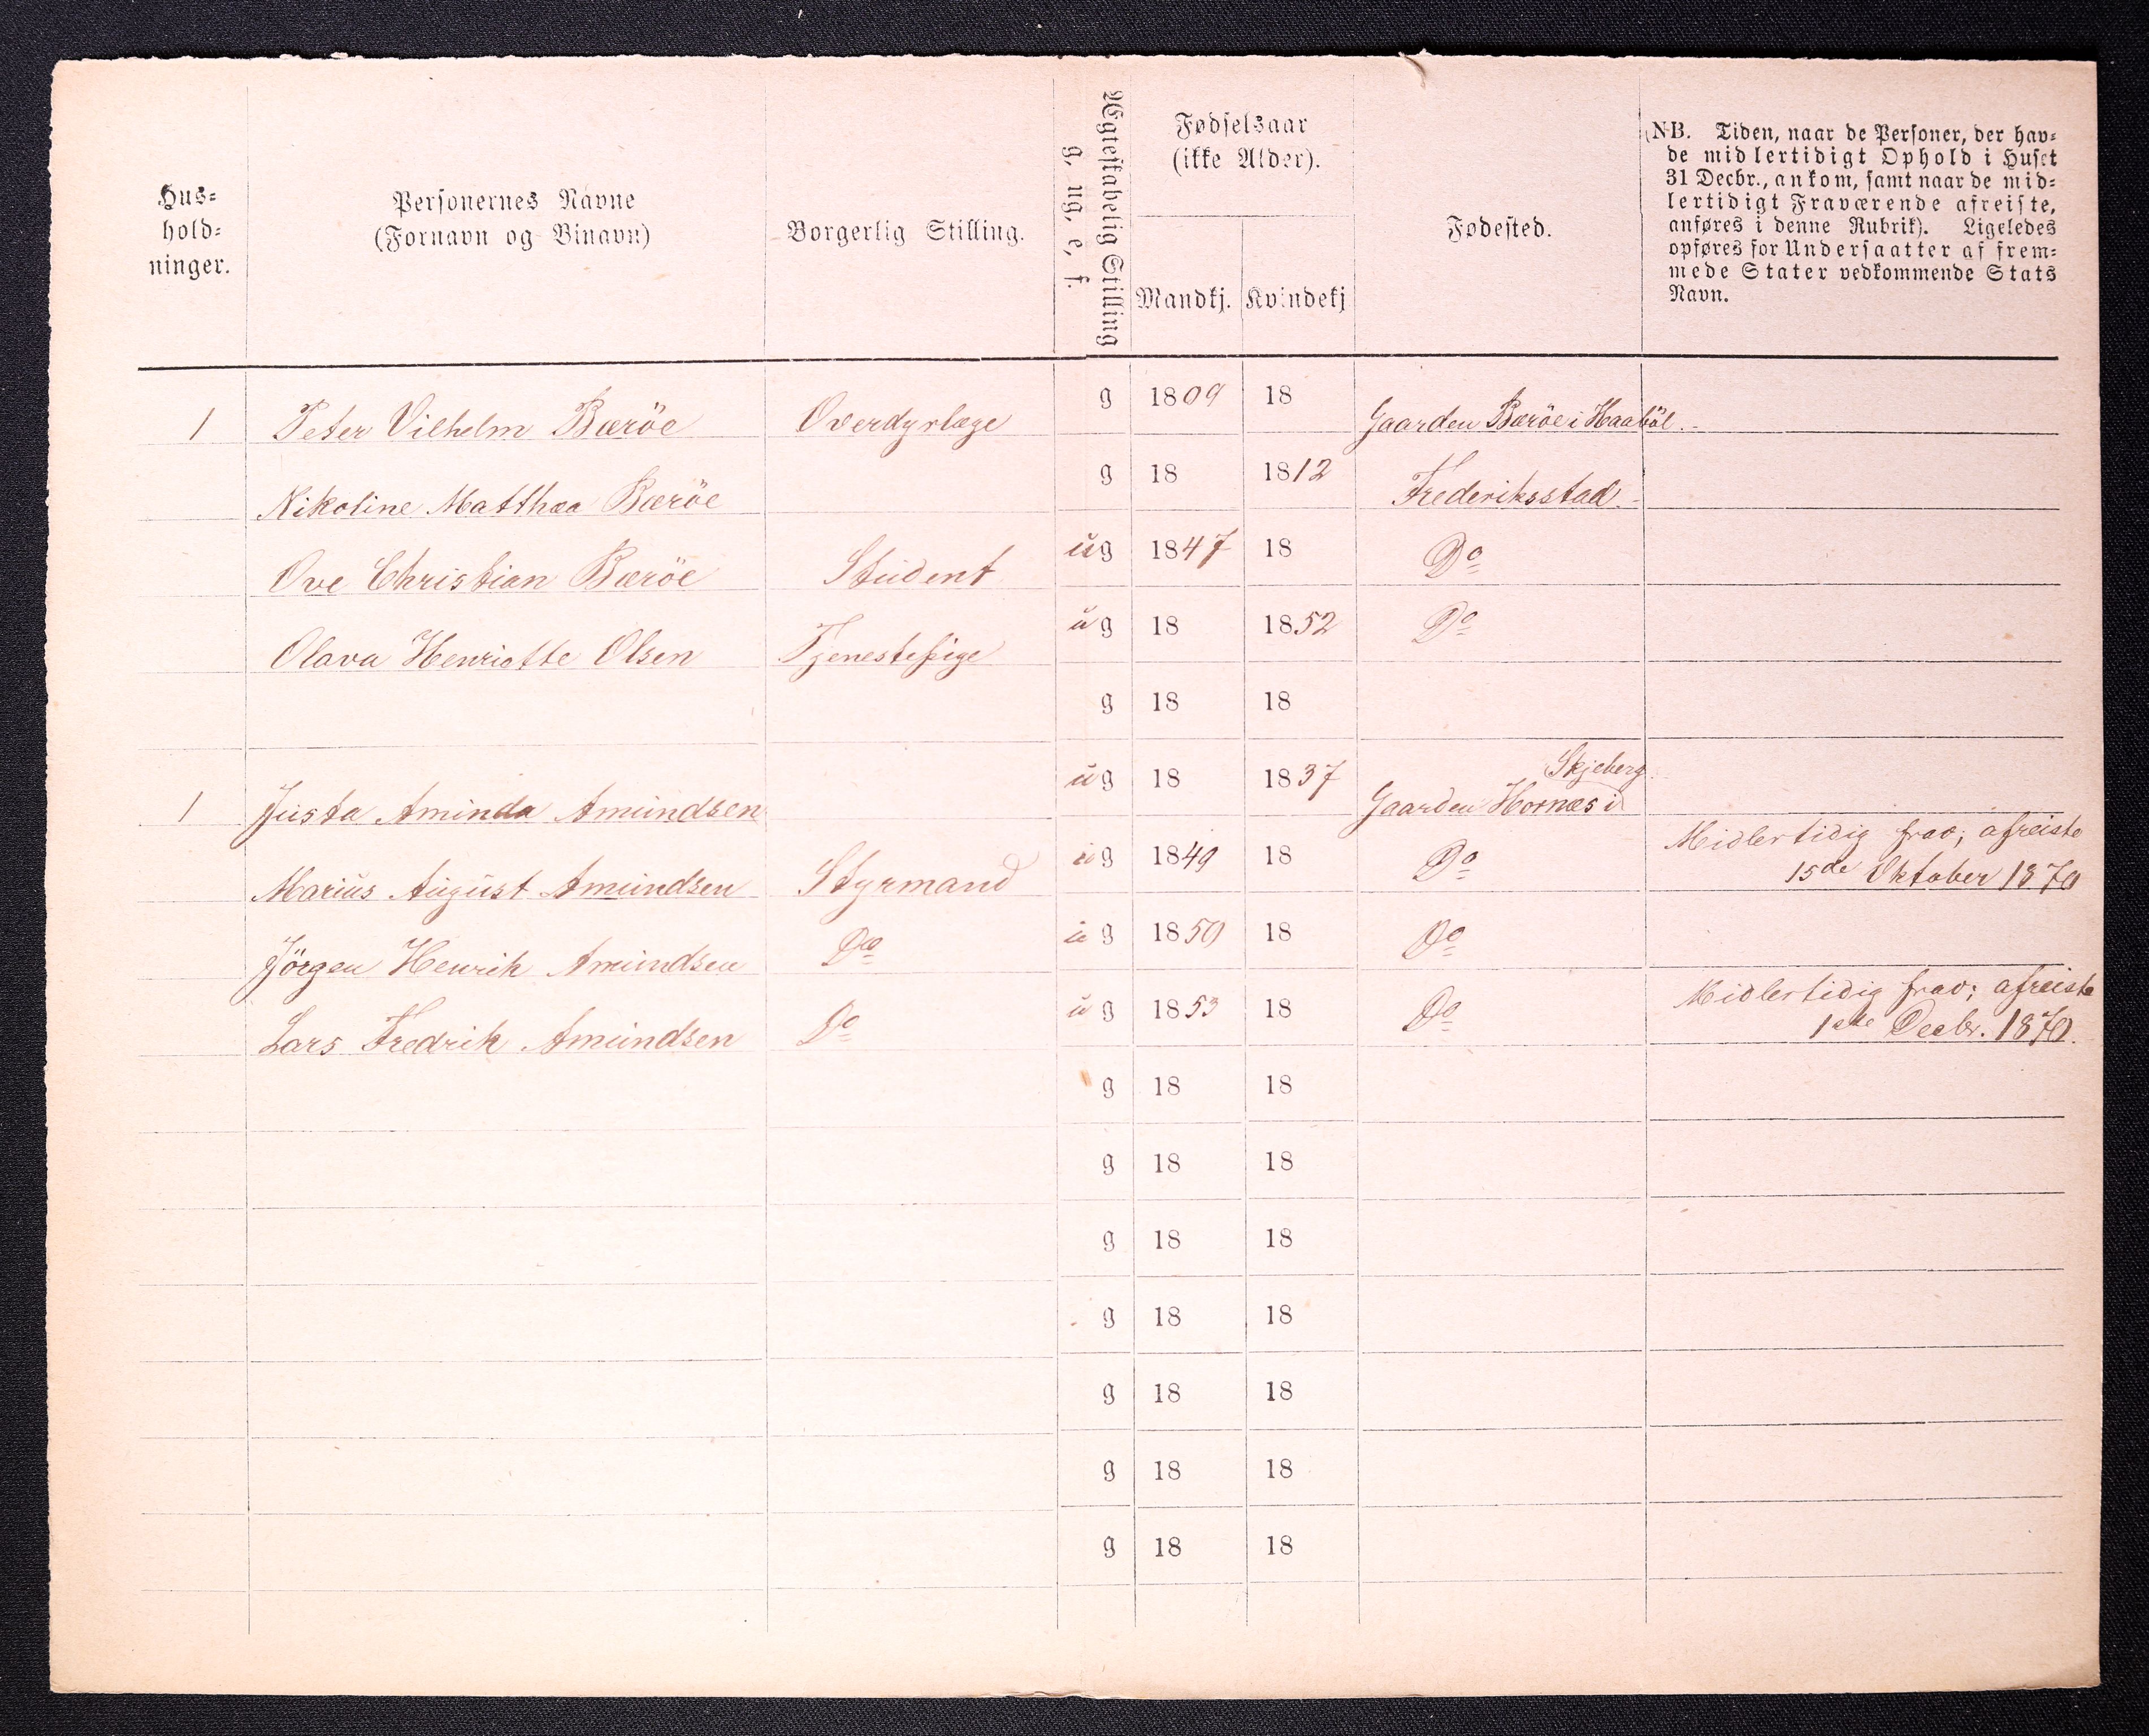 Hus=
hold=
ninger.
Personernes Navne
(Fornavn og Binavn)
Borgerlig Stilling.
Ægteskabelig Stilling
g, ug, e, f.
Fødselsaar
(ikke Alder).
Mandkj. Kvindekj
Fødested.
NB. Tiden, naar de Personer, der hav=
de midlertidigt Ophold i Huset
31 Decbr., ankom, samt naar de mid=
lertidigt Fraværende afreiste,
anføres i denne Rubrik). Ligeledes
opføres for Undersaatter af frem=
mede Stater vedkommende Stats
Navn.
1 Peter Vilhelm Bæröe Overdyrlæge g 1809 18 Gaarden Bæröe i Haaböl.
Nikoline Matthæa Bæröe g 18 1812 Frederiksstad.
Ove Christian Bæröe Student ug 1847 18 Do
Olava Henriette Olsen Tjenestepige ug 18 1852 Do
g 18 18
Skjeberg
1 Justa Aminda Amundsen ug 18 1837 Gaarden Hornæs i
Marius August Amundsen Styrmand ug 1849 18 Do Midlertidig frav; afreiste
15de Oktober 1870
Jörgen Henrik Amundsen Do ug 1850 18 Do
Lars Fredrik Amundsen Do ug 1853 18 Do Midlertidig frav; afreiste
1ste Decbr. 1870.
g 18 18
g 18 18
g 18 18
g 18 18
g 18 18
g 18 18
g 18 18